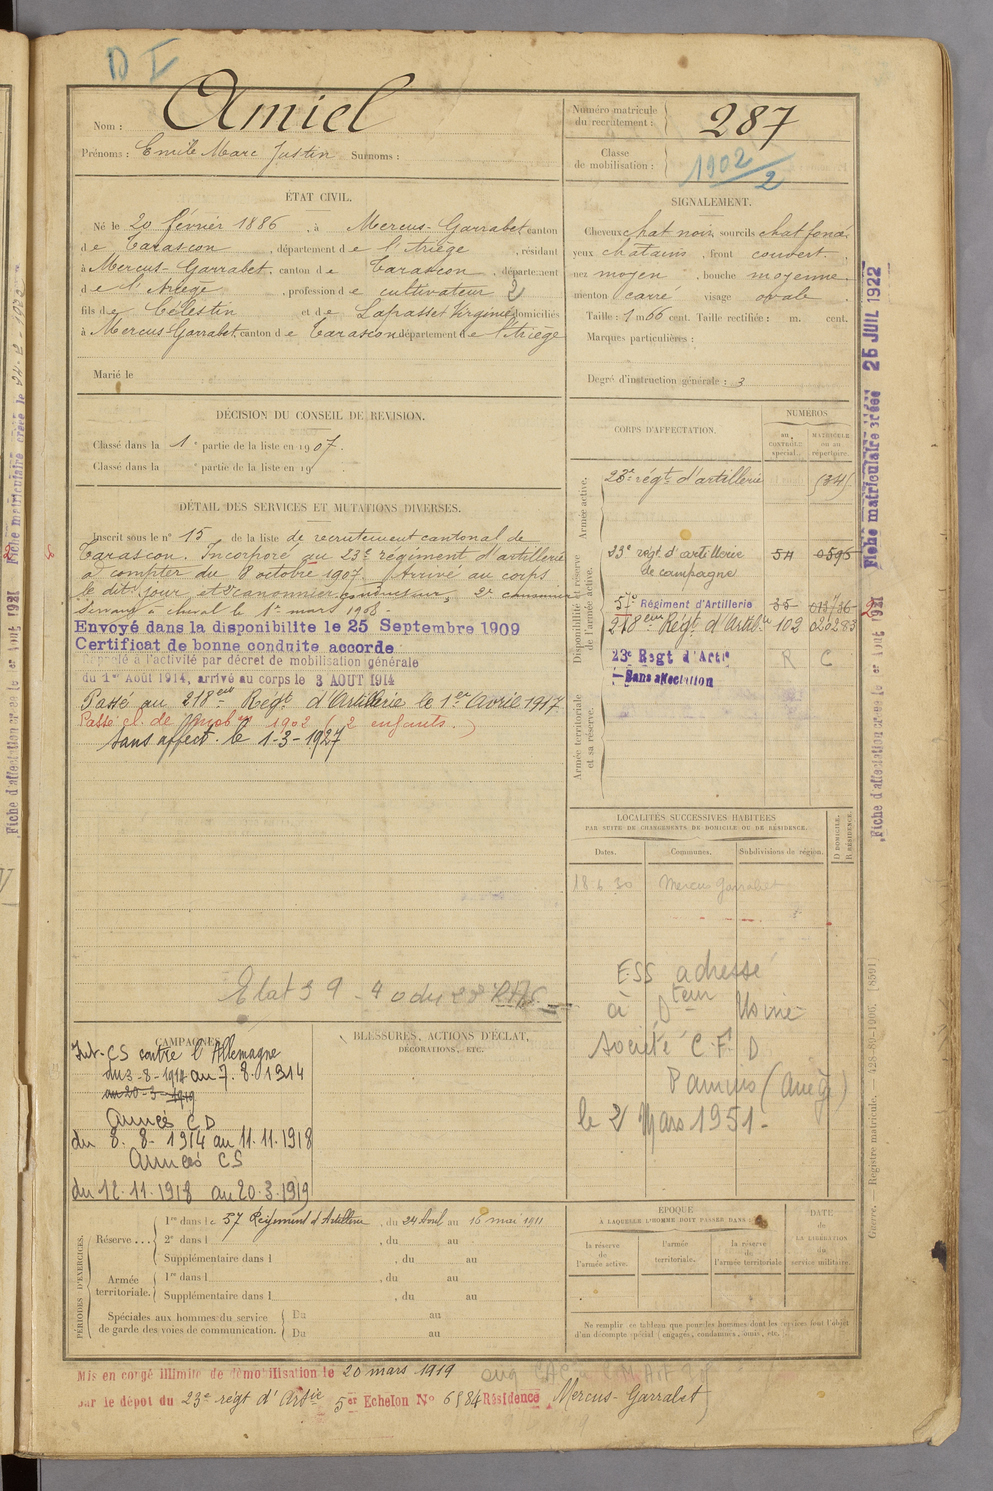 D I
Nom : Amiel
Prénoms : Emile Marc Justin Surnoms :
Numéro matricule
du recrutement : 287
Classe
de mobilisation : 1902/2
ÉTAT CIVIL.
Né le 20 février 1886 , à Mercus-Garrabet canton
de Tarascon , département de l'Ariège , résidant
à Mercus-Garrabet, canton de Tarascon , département
de l'Ariège , profession de cultivateur 2
fils de Célestin et de Lapasset Virginie domiciliés
à Mercus-Garrabet, canton de Tarascon département de l'Ariège
Marié le
SIGNALEMENT.
Cheveux chat noir, sourcils chat foncé
yeux chatains , front couvert.
nez moyen , bouche moyenne
menton carré visage ovale
Taille : 1 m 66 cent. Taille rectifiée : m. cent.
Marques particulières :
Degré d'instruction générale : 3
DÉCISION DU CONSEIL DE RÉVISION.
Classé dans la 1e partie de la liste en 1907.
Classé dans la e partie de la liste en 19
DÉTAIL DES SERVICES ET MUTATIONS DIVERSES.
Inscrit sous le n° 15 de la liste de recrutement cantonal de
Tarascon. Incorporé au 23e régiment d'artillerie
à compter du 8 octobre 1907. Arrivé au corps
le dit jour, et 2e canonnier conducteur, 2e canonnier
servant à cheval le 1er mars 1908.
Envoyé dans la disponibilite le 25 Septembre 1909
Certificat de bonne conduite accorde
Rappelé à l'activité par décret de mobilisation générale
du 1er Août 1914, arrivé au corps le 3 AOUT 1914
Passé au 218eme Régt d'Artillerie le 1er Avril 1917
Passé cl. de Mobon 1902 (2 enfants.)
Sans affect. le 1-3-1927
Etat 39 - 40 du 28 R.A.
CORPS D'AFFECTATION.
NUMÉROS
au CONTRÔLE spécial.
MATRICULE ou au répertoire.
Armée active.
23e régt d'artillerie (34)
Disponibilité et réserve
de l'armée active.
23e régt d'artillerie 54 0595
de campagne
57e Régiment d'Artillerie 35 013736
218eme Regt d'Artie 102 020283
23e Regt d'Artie R C
Sans affectation
Armée territoriale
et sa réserve.
LOCALITÉS SUCCESSIVES HABITÉES
PAR SUITE DE CHANGEMENTS DE DOMICILE OU DE RÉSIDENCE.
Dates. Communes. Subdivisions de région. D DOMICILE. R RÉSIDENCE.
18 6 30 Mercus Garrabet
ESS adressé
à Dteur Usine
Société C.F.D
Pamiers (Ariège)
le 2 Mars 1951-
CAMPAGNES
Int-CS contre l'Allemagne
du 3-8-1914 au 7.8.1914
au 20-3-1919
Armées CD
du 8.8-1914 au 11.11.1918
Armées CS
du 12.11.1918 au 20.3.1919
BLESSURES, ACTIONS D'ÉCLAT,
DÉCORATIONS, ETC.
PÉRIODES D'EXERCICES.
Réserve ...
1re dans le 57 Régiment d'Artillerie , du 24 Avril au 16 mai 1911
2e dans l , du au
Supplémentaire dans l , du au
Armée
territoriale.
1re dans l , du au
Supplémentaire dans l , du au
Spéciales aux hommes du service
de garde des voies de communication.
Du au
Du au
ÉPOQUE
À LAQUELLE L'HOMME DOIT PASSER DANS :
la réserve de l'armée active.
l'armée territoriale.
la réserve de l'armée territoriale
DATE de LA LIBÉRATION du service militaire.
Ne remplir ce tableau que pour les hommes dont les services font l'objet
d'un décompte spécial (engagés, condamnés, omis, etc.)
Mis en congé illimité de démobilisation le 20 mars 1919
par le dépôt du 23e régt d'Artie 5er Echelon No 6584 Résidence Mercus-Garrabet
Fiche matriculaire créée 25 JUIL 1922
Fiche d'affectation créée le 1er Aout 1931
Guerre. — Registre matricule. — 428-80-1906. [8591]